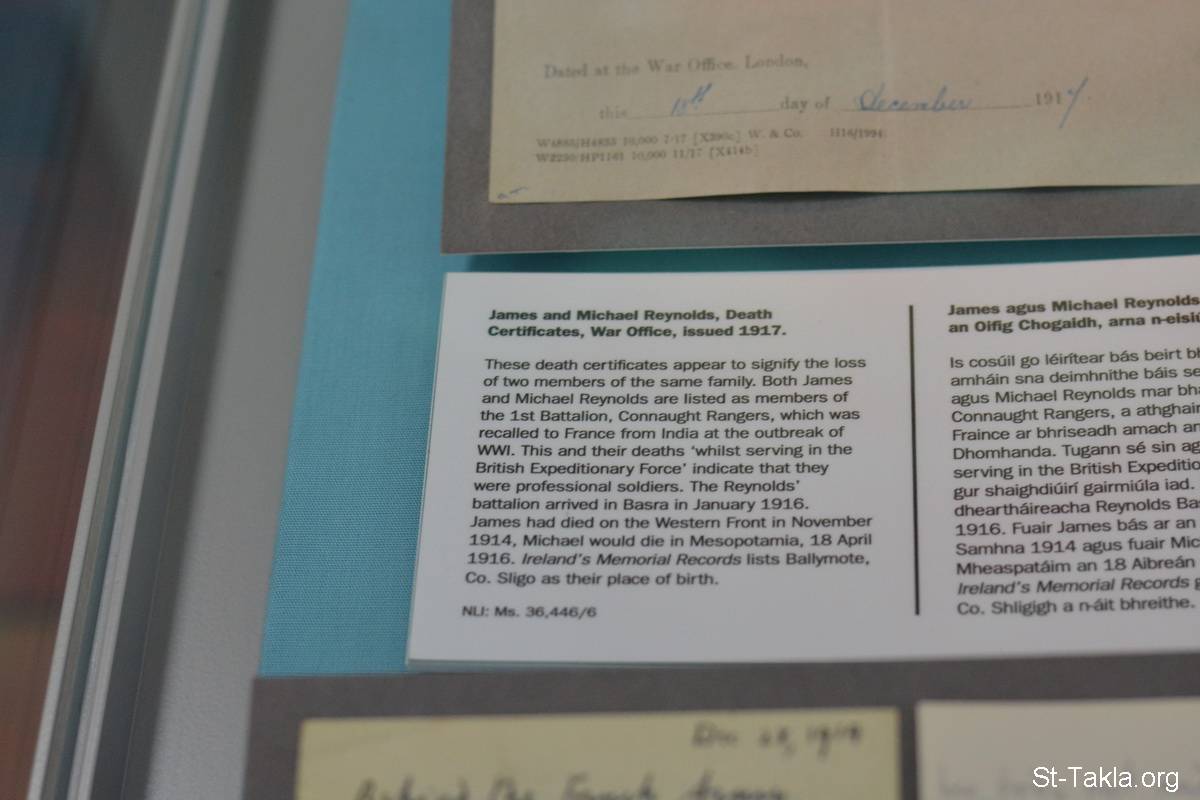 Dated at the War Office, London,
this 10th day of December 1917
W4883/H4833 10,000 7/17 [X390c] W. & Co. H16/1994
W2230/HP1161 10,000 11/17 [X414b]
James and Michael Reynolds, Death
Certificates, War Office, issued 1917.
These death certificates appear to signify the loss
of two members of the same family. Both James
and Michael Reynolds are listed as members of
the 1st Battalion, Connaught Rangers, which was
recalled to France from India at the outbreak of
WWI. This and their deaths ‘whilst serving in the
British Expeditionary Force’ indicate that they
were professional soldiers. The Reynolds’
battalion arrived in Basra in January 1916.
James had died on the Western Front in November
1914, Michael would die in Mesopotamia, 18 April
1916. Ireland’s Memorial Records lists Ballymote,
Co. Sligo as their place of birth.
NLI: Ms. 36,446/6
James agus Michael Reynolds,
an Oifig Chogaidh, arna n-eisiú
Is cosúil go léirítear bás beirt bh
amháin sna deimhnithe báis se
agus Michael Reynolds mar bha
Connaught Rangers, a athghair
Fraince ar bhriseadh amach an
Dhomhanda. Tugann sé sin ag
serving in the British Expeditio
gur shaighdiúirí gairmiúla iad.
dheartháireacha Reynolds Ba
1916. Fuair James bás ar an
Samhna 1914 agus fuair Mic
Mheaspatáim an 18 Aibreán
Ireland’s Memorial Records g
Co. Shligigh a n-áit bhreithe.
Behind The French Army
St-Takla.org